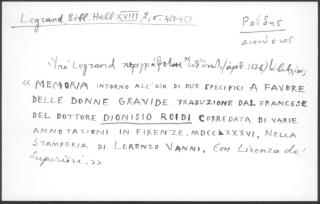 Legrand, Bibl. Hell. XVIII, 2, σ. 458-459
Ροΐδης
Διονύσιος
Legrand
« MEMORIA INTORNO ALL'USO DI DUE SPECIFICI A FAVORE
DELLE DONNE GRAVIDE TRADUZIONE DAL FRANCESE
DEL DOTTORE DIONISIO ROIDI CORREDATA DI VARIE
ANNOTAZIONI IN FIRENZE. MDCCLXXXVI, NELLA
STAMPERIA DI LORENZO VANNI. Con Licenza de'
Superiori. »